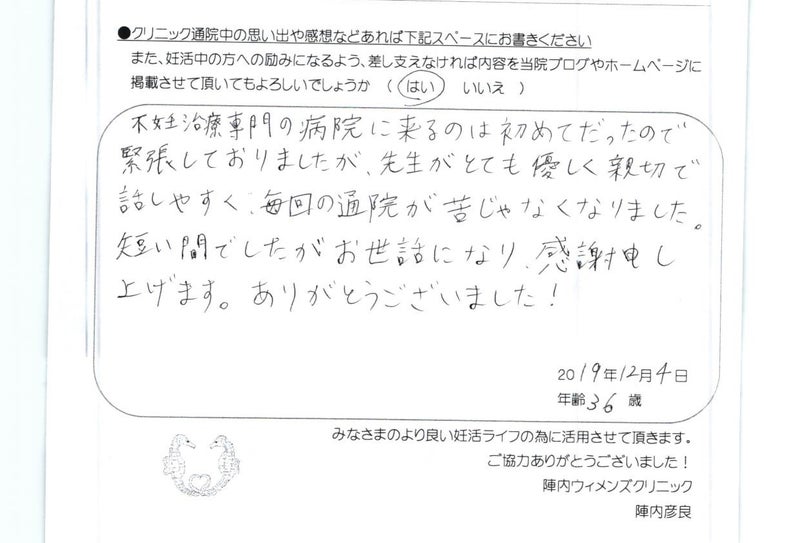 ●クリニック通院中の思い出や感想などあれば下記スペースにお書きください
また、妊活中の方への励みになるよう、差し支えなければ内容を当院ブログやホームページに
掲載させて頂いてもよろしいでしょうか （ はい　いいえ ）
不妊治療専門の病院に来るのは初めてだったので
緊張しておりましたが、先生がとても優しく親切で
話しやすく、毎回の通院が苦じゃなくなりました。
短い間でしたがお世話になり、感謝申し
上げます。ありがとうございました！
2019年12月4日
年齢36歳
みなさまのより良い妊活ライフの為に活用させて頂きます。
ご協力ありがとうございました！
陣内ウィメンズクリニック
陣内彦良